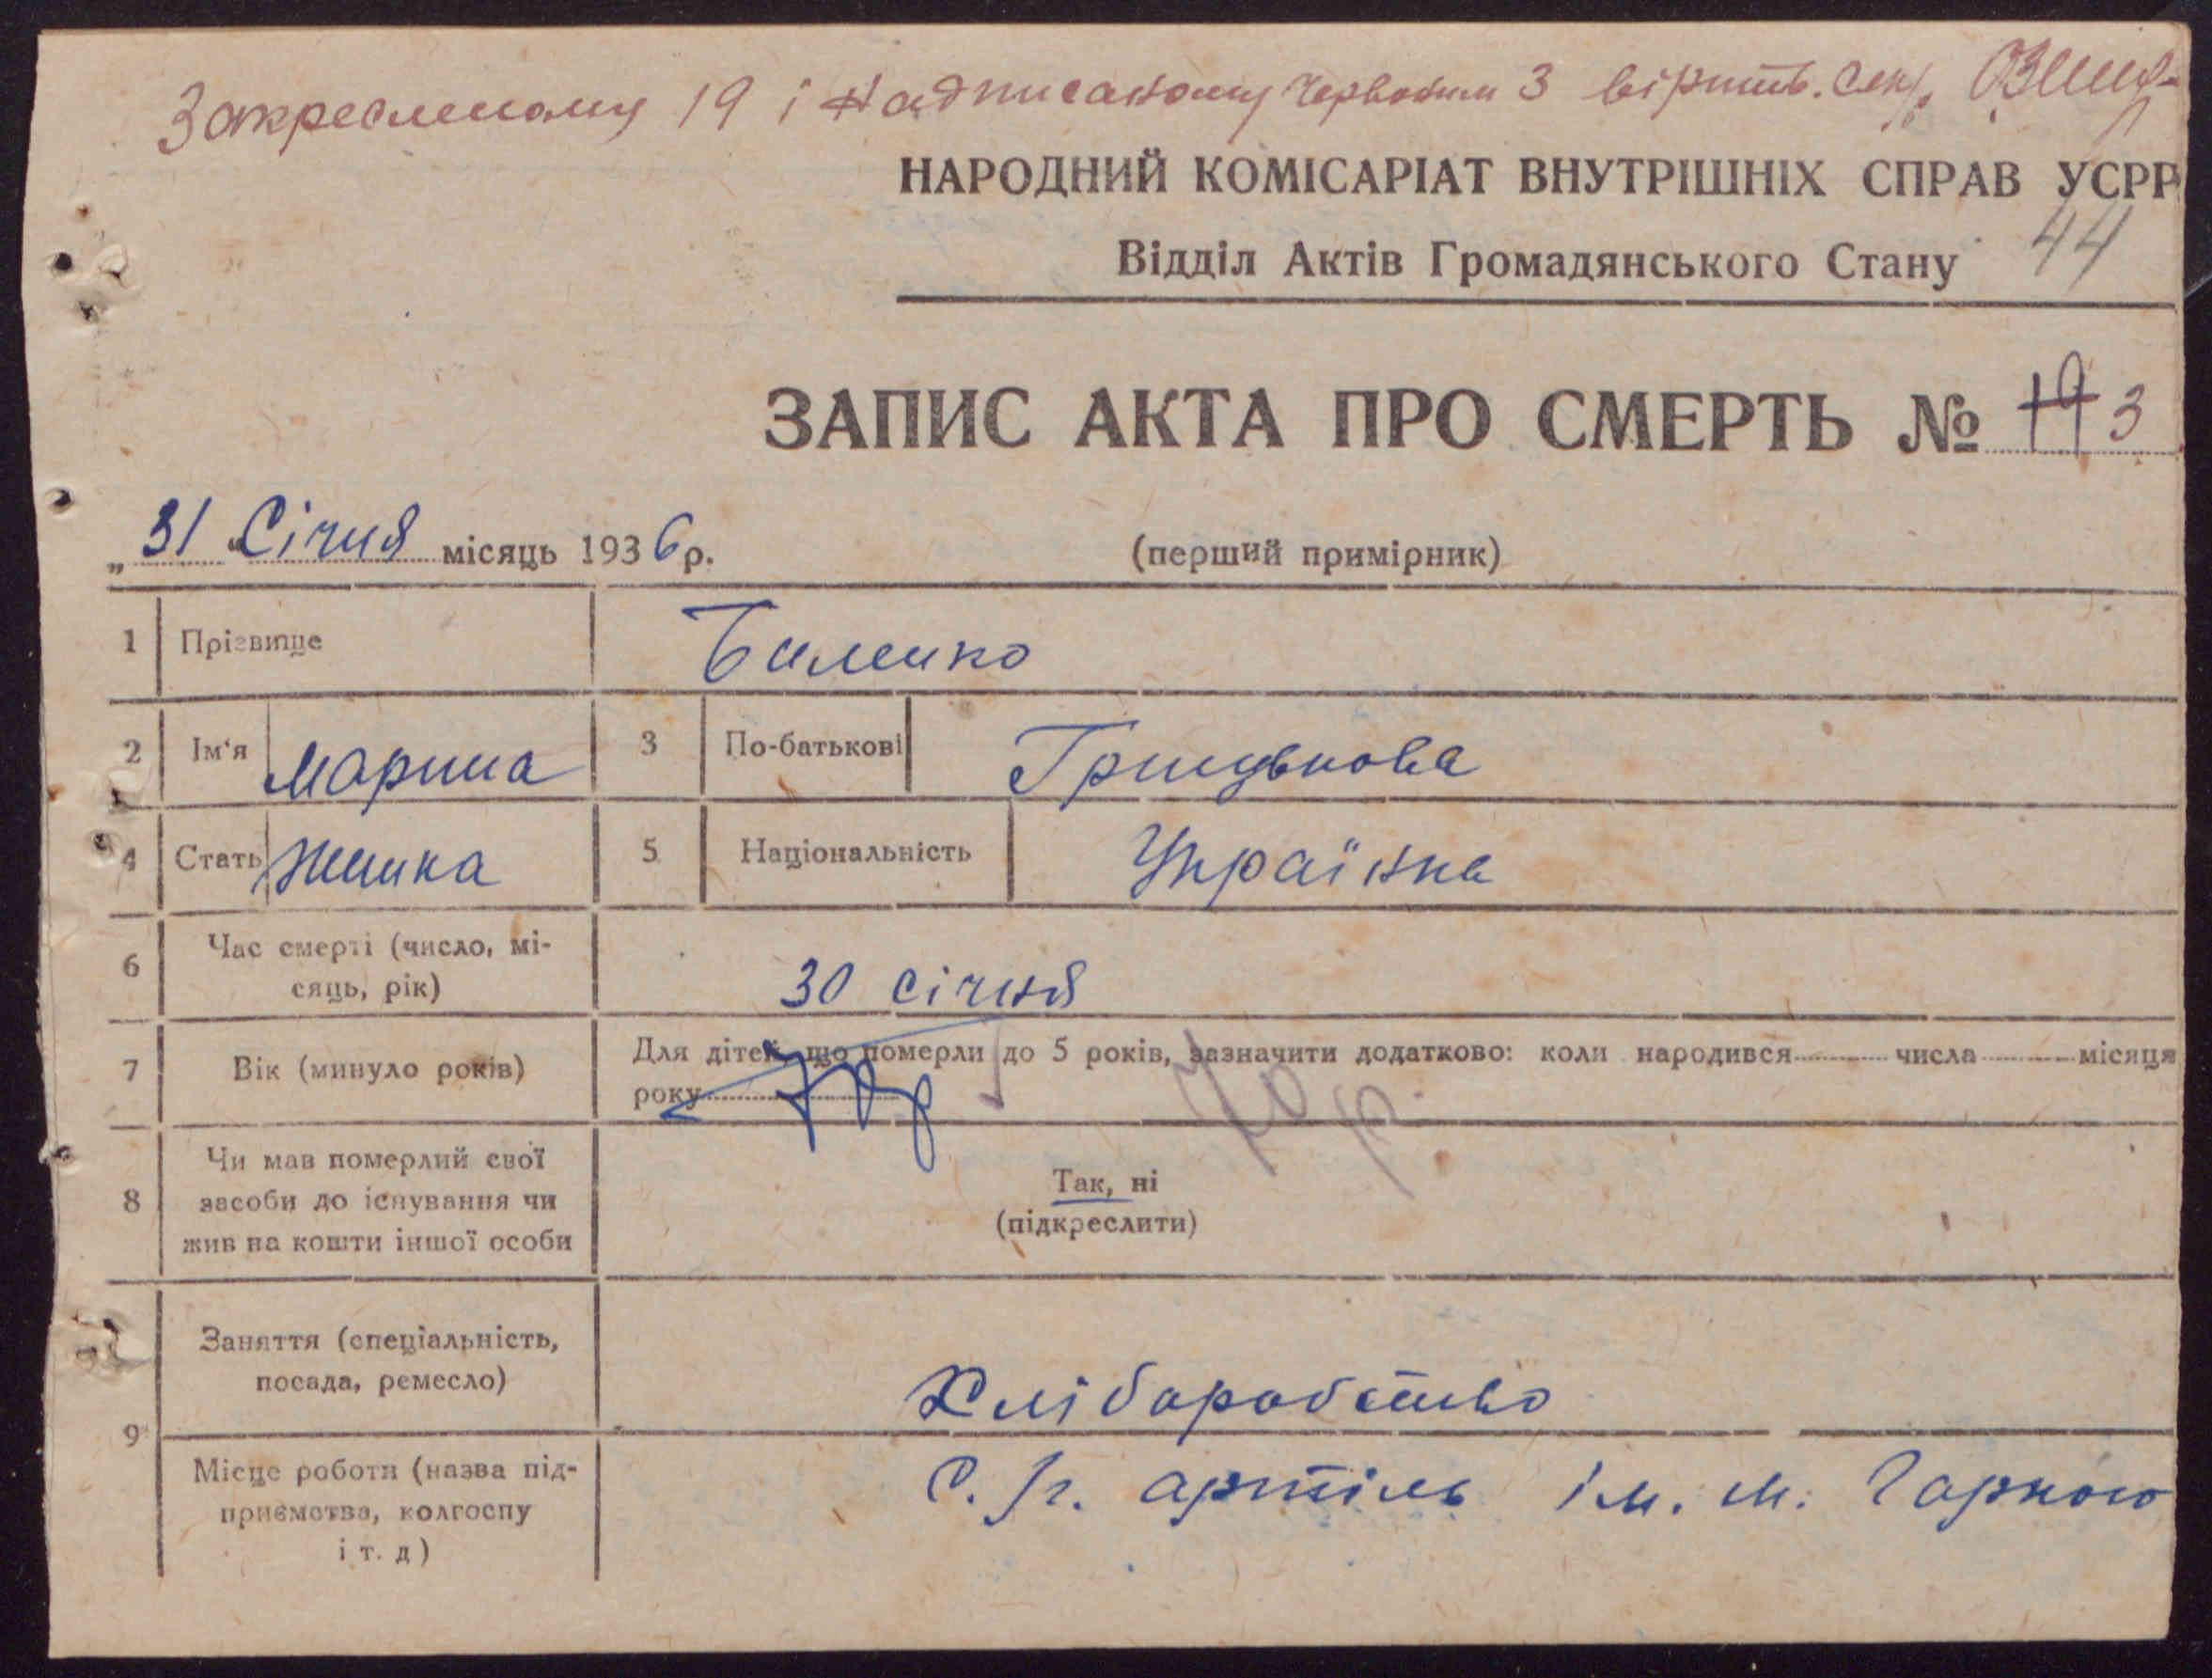 Закресленому 19 і надписаному червоним 3 вірить. Секр.
НАРОДНИЙ КОМІСАРІАТ ВНУТРІШНІХ СПРАВ УСРР
Відділ Актів Громадянського Стану 44
ЗАПИС АКТА ПРО СМЕРТЬ № 19 3
„31" Січня місяць 1936 р. (перший примірник)
1 Прізвище Биленко
2 Ім'я Марина 3 По-батькові Грицькова
4 Стать Жинка 5 Національність Українка
6 Час смерті (число, мі-
сяць, рік) 30 січня
7 Вік (минуло років) Для дітей, що померли до 5 років, зазначити додатково: коли народився числа місяця
року 70 р 70 р.
8 Чи мав померлий свої
засоби до існування чи
жив на кошти іншої особи
Так, ні
(підкреслити)
9 Заняття (спеціальність,
посада, ремесло) Хлібаробство
Місце роботи (назва під-
приємства, колгоспу
і т. д) С./г. артіль ім. М. Гарного